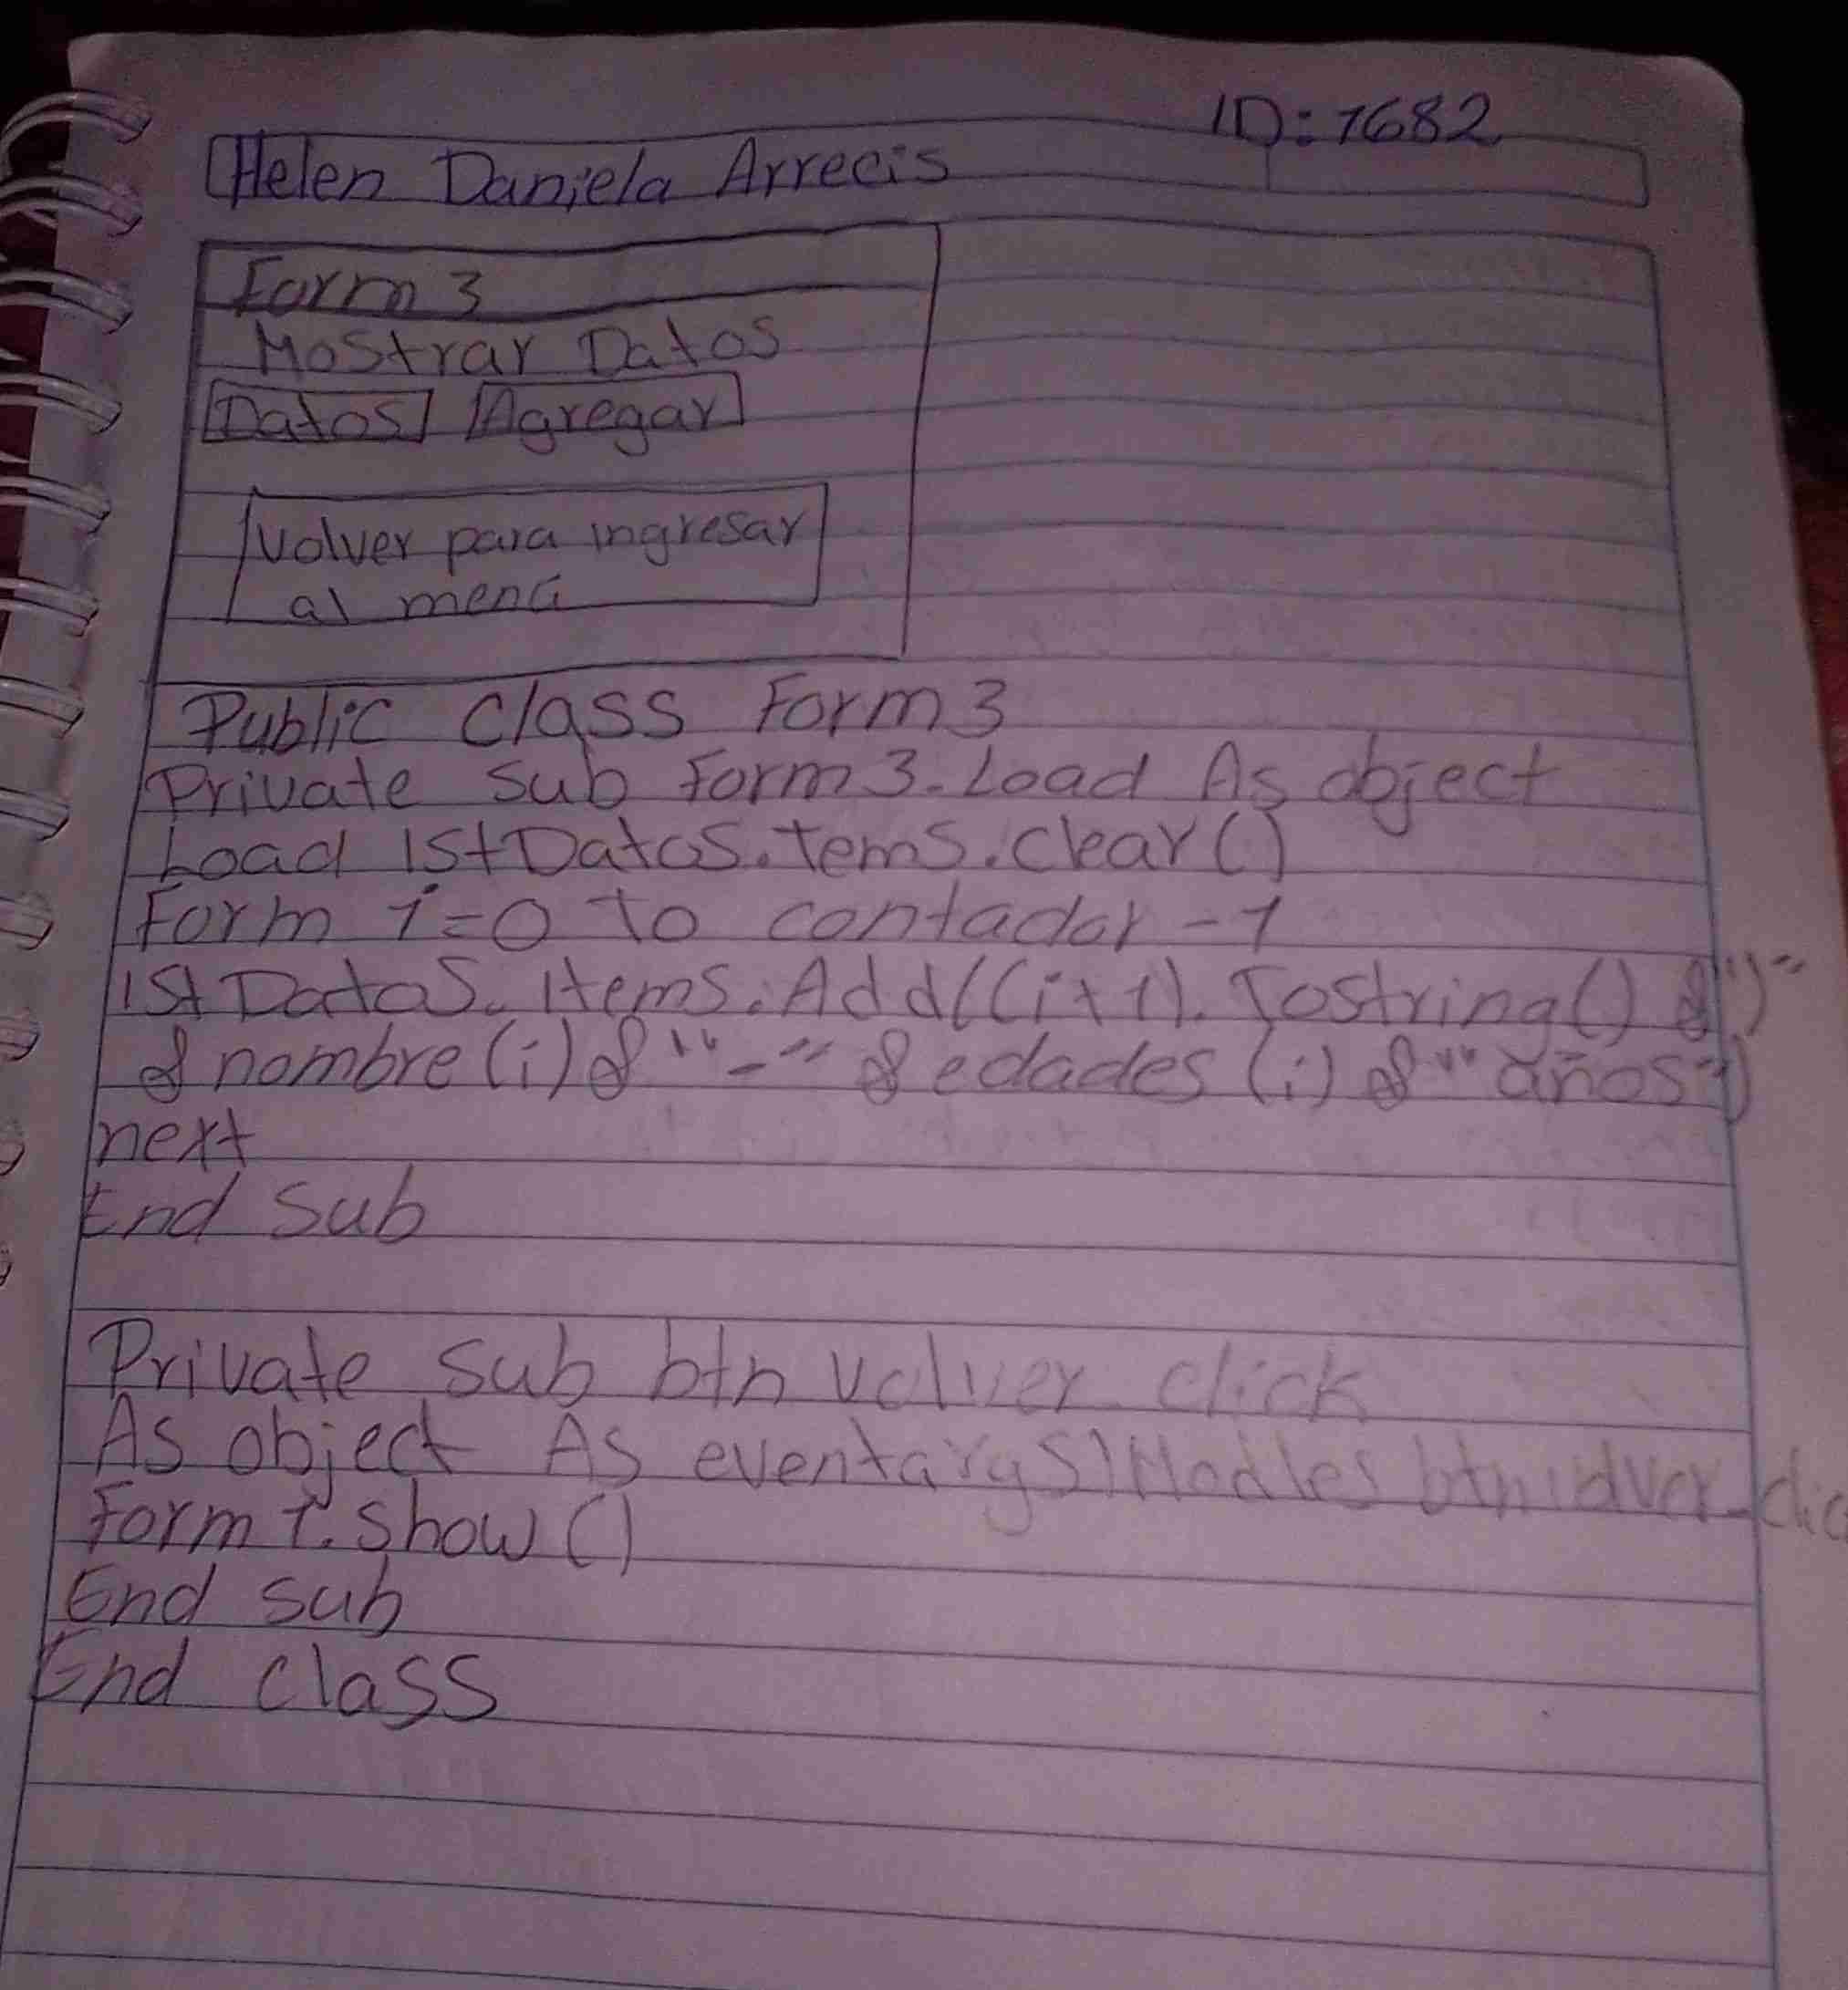 ID: 1682
Helen Daniela Arrecis
Form 3
Mostrar Datos
Datos Agregar
Volver para ingresar
al menú
Public Class Form 3
Private Sub Form 3. Load As object
Load lstDatos.tems.clear()
Form i=0 to contador -1
lst Datos. Items. Add((i+1). Tostring() & ")"
& nombre (i) & "-" & edades (i) & "años")
next
End Sub
Private Sub btn volver click
As object As eventargs) Hadles
Form 1. show()
End sub
End class